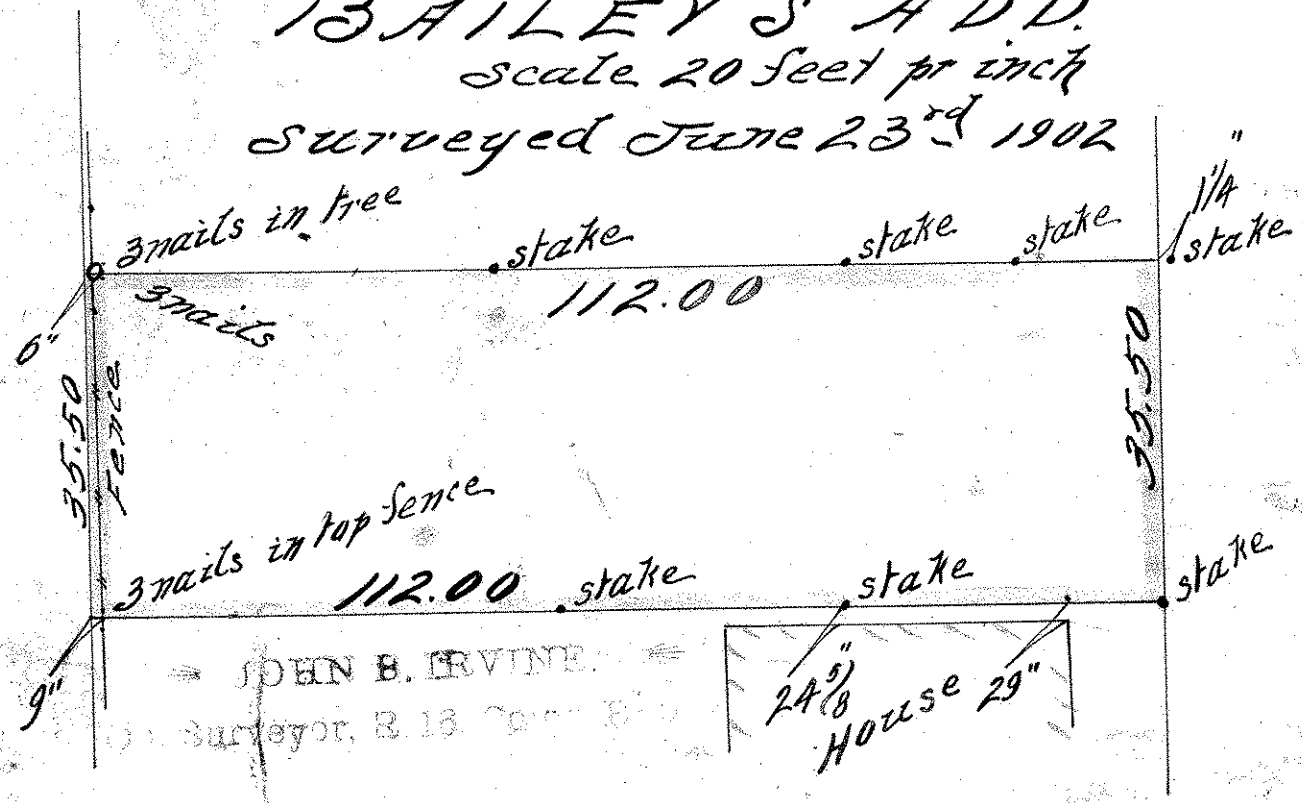 BAILEY'S ADD.
Scale 20 feet pr inch
Surveyed June 23rd 1902
3nails in tree
stake
stake
stake
1 1/4"
stake
3nails
112.00
6"
35.50
Fence
35.50
3nails in top fence
112.00
stake
stake
stake
9"
24 5/8"
House
29"
JOHN B. IRVINE.
Surveyor, R 16